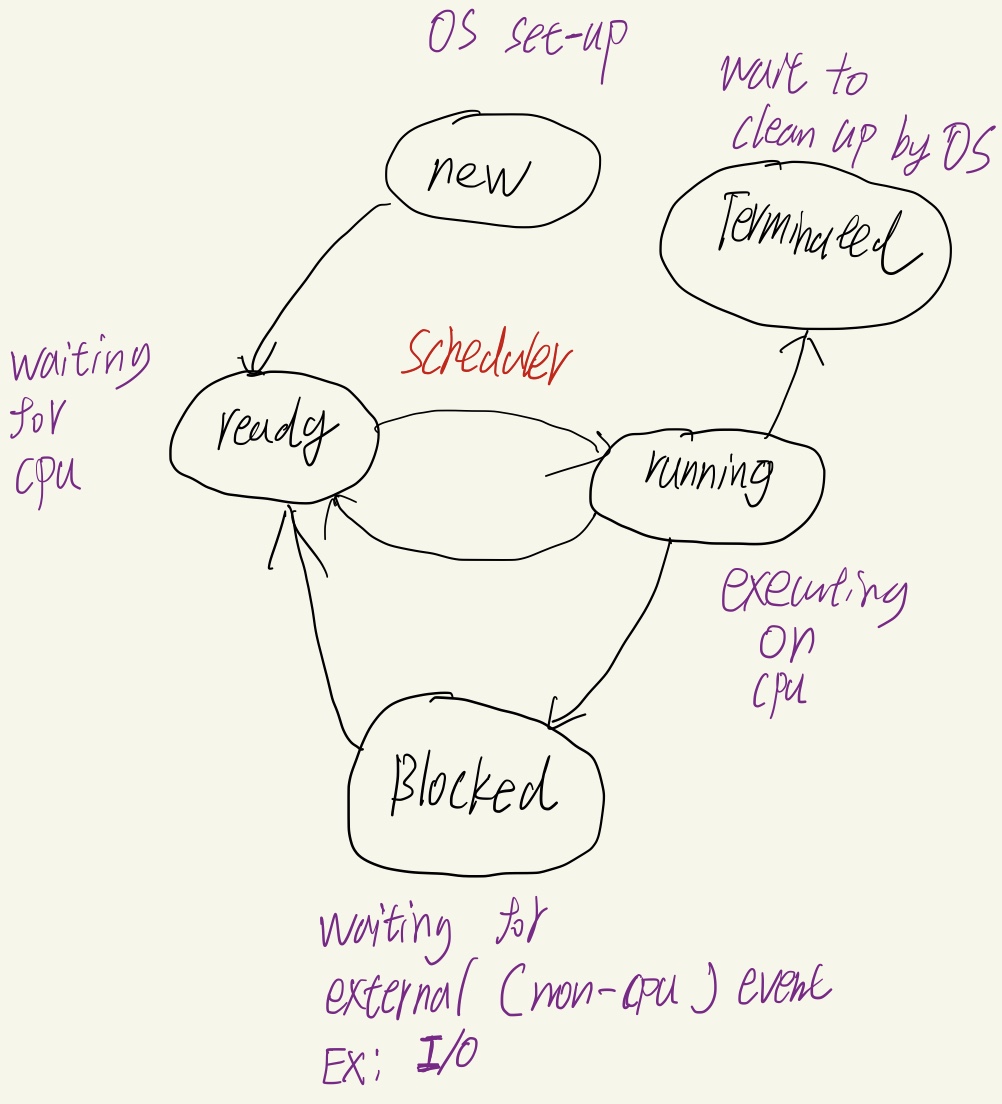 OS set-up
wait to
clean up by OS
new
Terminated
scheduler
waiting
for
cpu
ready
running
executing
on
cpu
Blocked
waiting for
external (non-cpu) event
Ex: I/O